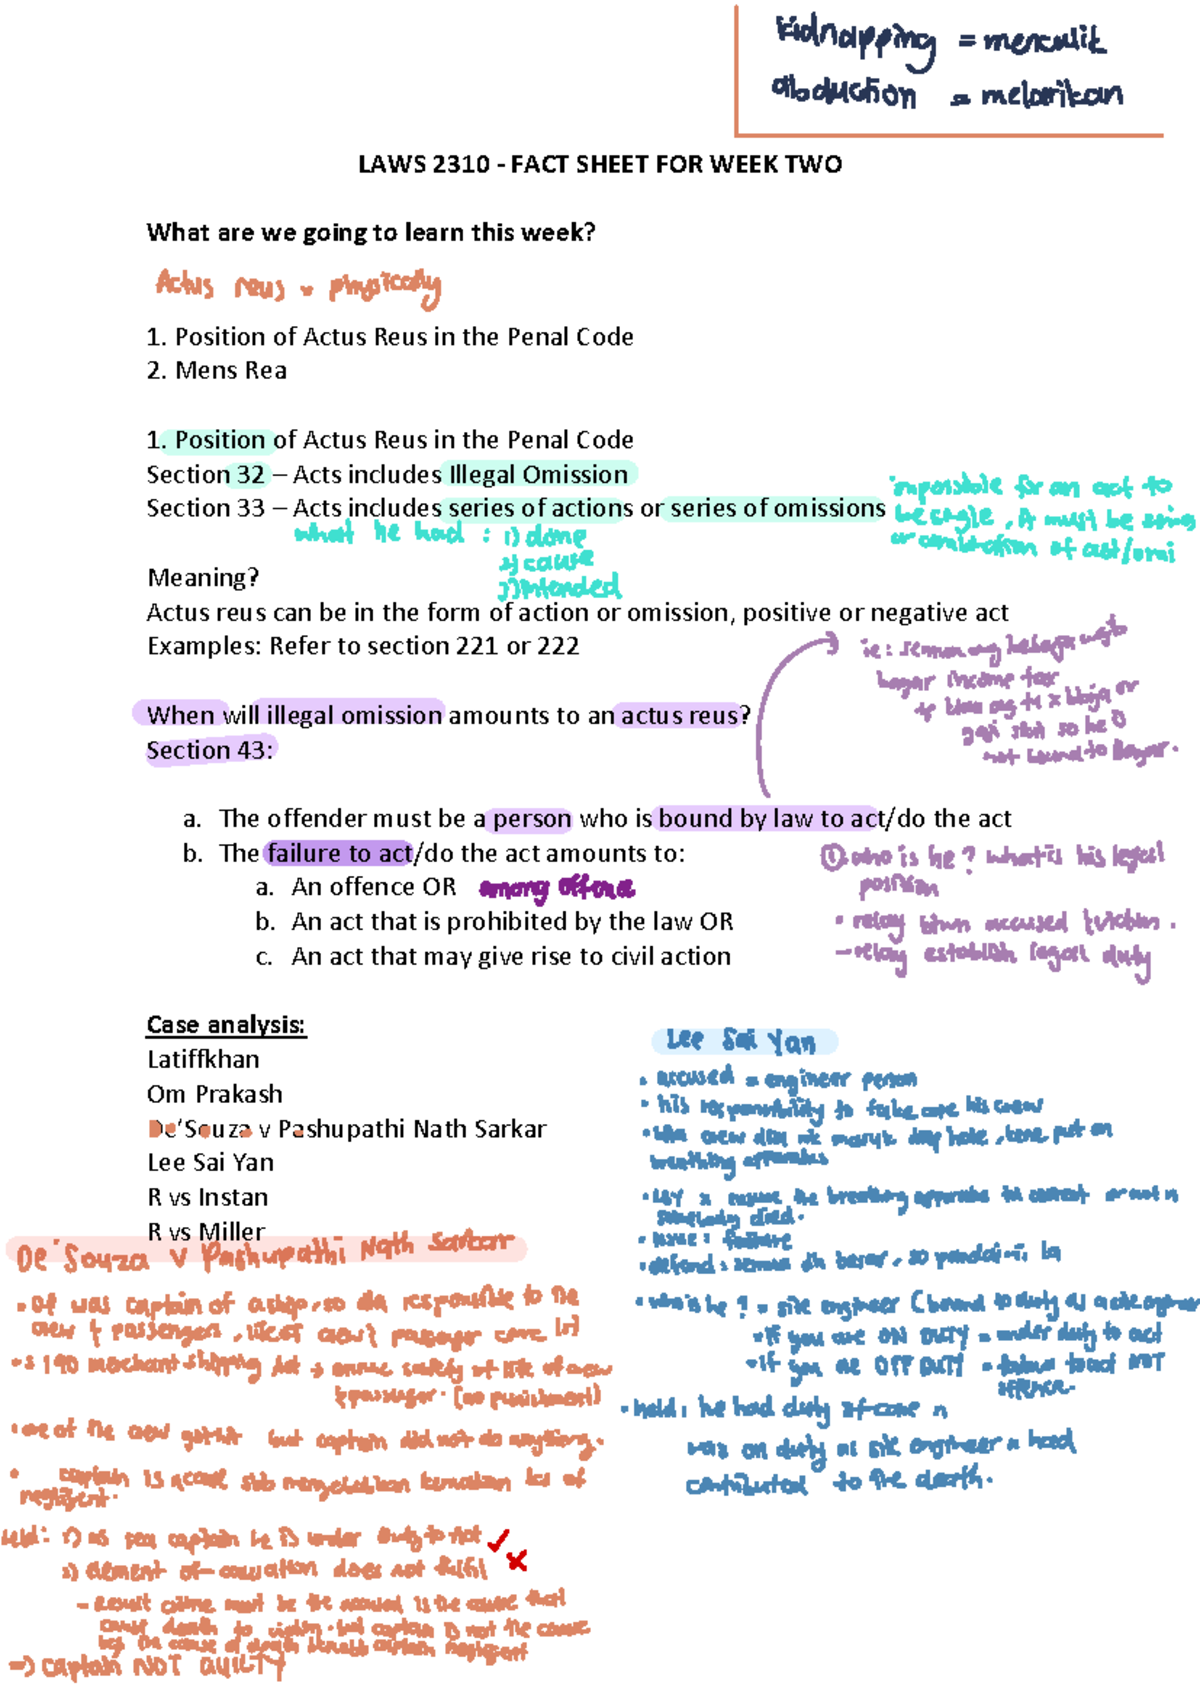 kidnapping = menculik
abduction = melarikan
LAWS 2310 - FACT SHEET FOR WEEK TWO
What are we going to learn this week?
Actus reus = physically
1. Position of Actus Reus in the Penal Code
2. Mens Rea
1. Position of Actus Reus in the Penal Code
Section 32 – Acts includes Illegal Omission
Section 33 – Acts includes series of actions or series of omissions
impossible for an act to
be single, it must be series
or combination of act/omi
what he had : 1) done
2) cause
3) intended
Meaning?
Actus reus can be in the form of action or omission, positive or negative act
Examples: Refer to section 221 or 222
ie: semua org bekerja
bayar income tax
so he is
not bound to bayar.
When will illegal omission amounts to an actus reus?
Section 43:
a. The offender must be a person who is bound by law to act/do the act
b. The failure to act/do the act amounts to:
a. An offence OR among offence
b. An act that is prohibited by the law OR
c. An act that may give rise to civil action
① who is he? what is his legal
position
• relay btwn accused & victim.
– relay establish legal duty
Case analysis:
Latiffkhan
Om Prakash
De'Souza v Pashupathi Nath Sarkar
Lee Sai Yan
R vs Instan
R vs Miller
Lee Sai Yan
• accused = engineer person
• his responsibility to take care his crew
• crew masuk deep hole, kena put on
breathing apparatus
• LSY x ensure the breathing apparatus in correct or not n
somebody died.
• issue : failure
• defend : semua dh besar, so pandai-2 la
• who is he? = site engineer (bound to duty as a site engineer
• If you are ON DUTY = under duty to act
• If you are OFF DUTY = failure to act NOT
offence.
• held : he had duty of care n
was on duty as site engineer n had
contributed to the death.
De'Souza v Pashupathi Nath Sarkar
• was captain of a ship, so dia responsible to the
crew & passengers,
• s 190 merchant shipping Act → ensure safety of life of crew
& passenger. (no punishment)
• one of the crew but captain did not do anything.
• captain is accused sbb menyebabkan kematian bcs of
negligent.
held: 1) as sea captain he is under duty to act ✓
2) element of causation does not fulfil ✗
– Result crime must be the accused is the cause that
cause death to victim. but captain is not the cause
bcs the cause of death captain negligent
=> captain NOT GUILTY